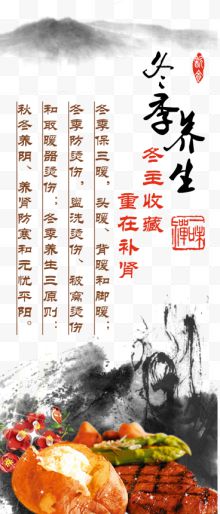 冬季养生
冬主收藏
重在补肾
冬季保三暖，头暖、背暖和脚暖；
冬季防烫伤，盥洗烫伤、被窝烫伤
和取暖器烫伤；冬季养生三原则：
秋冬养阴、养肾防寒和元忧平阳。